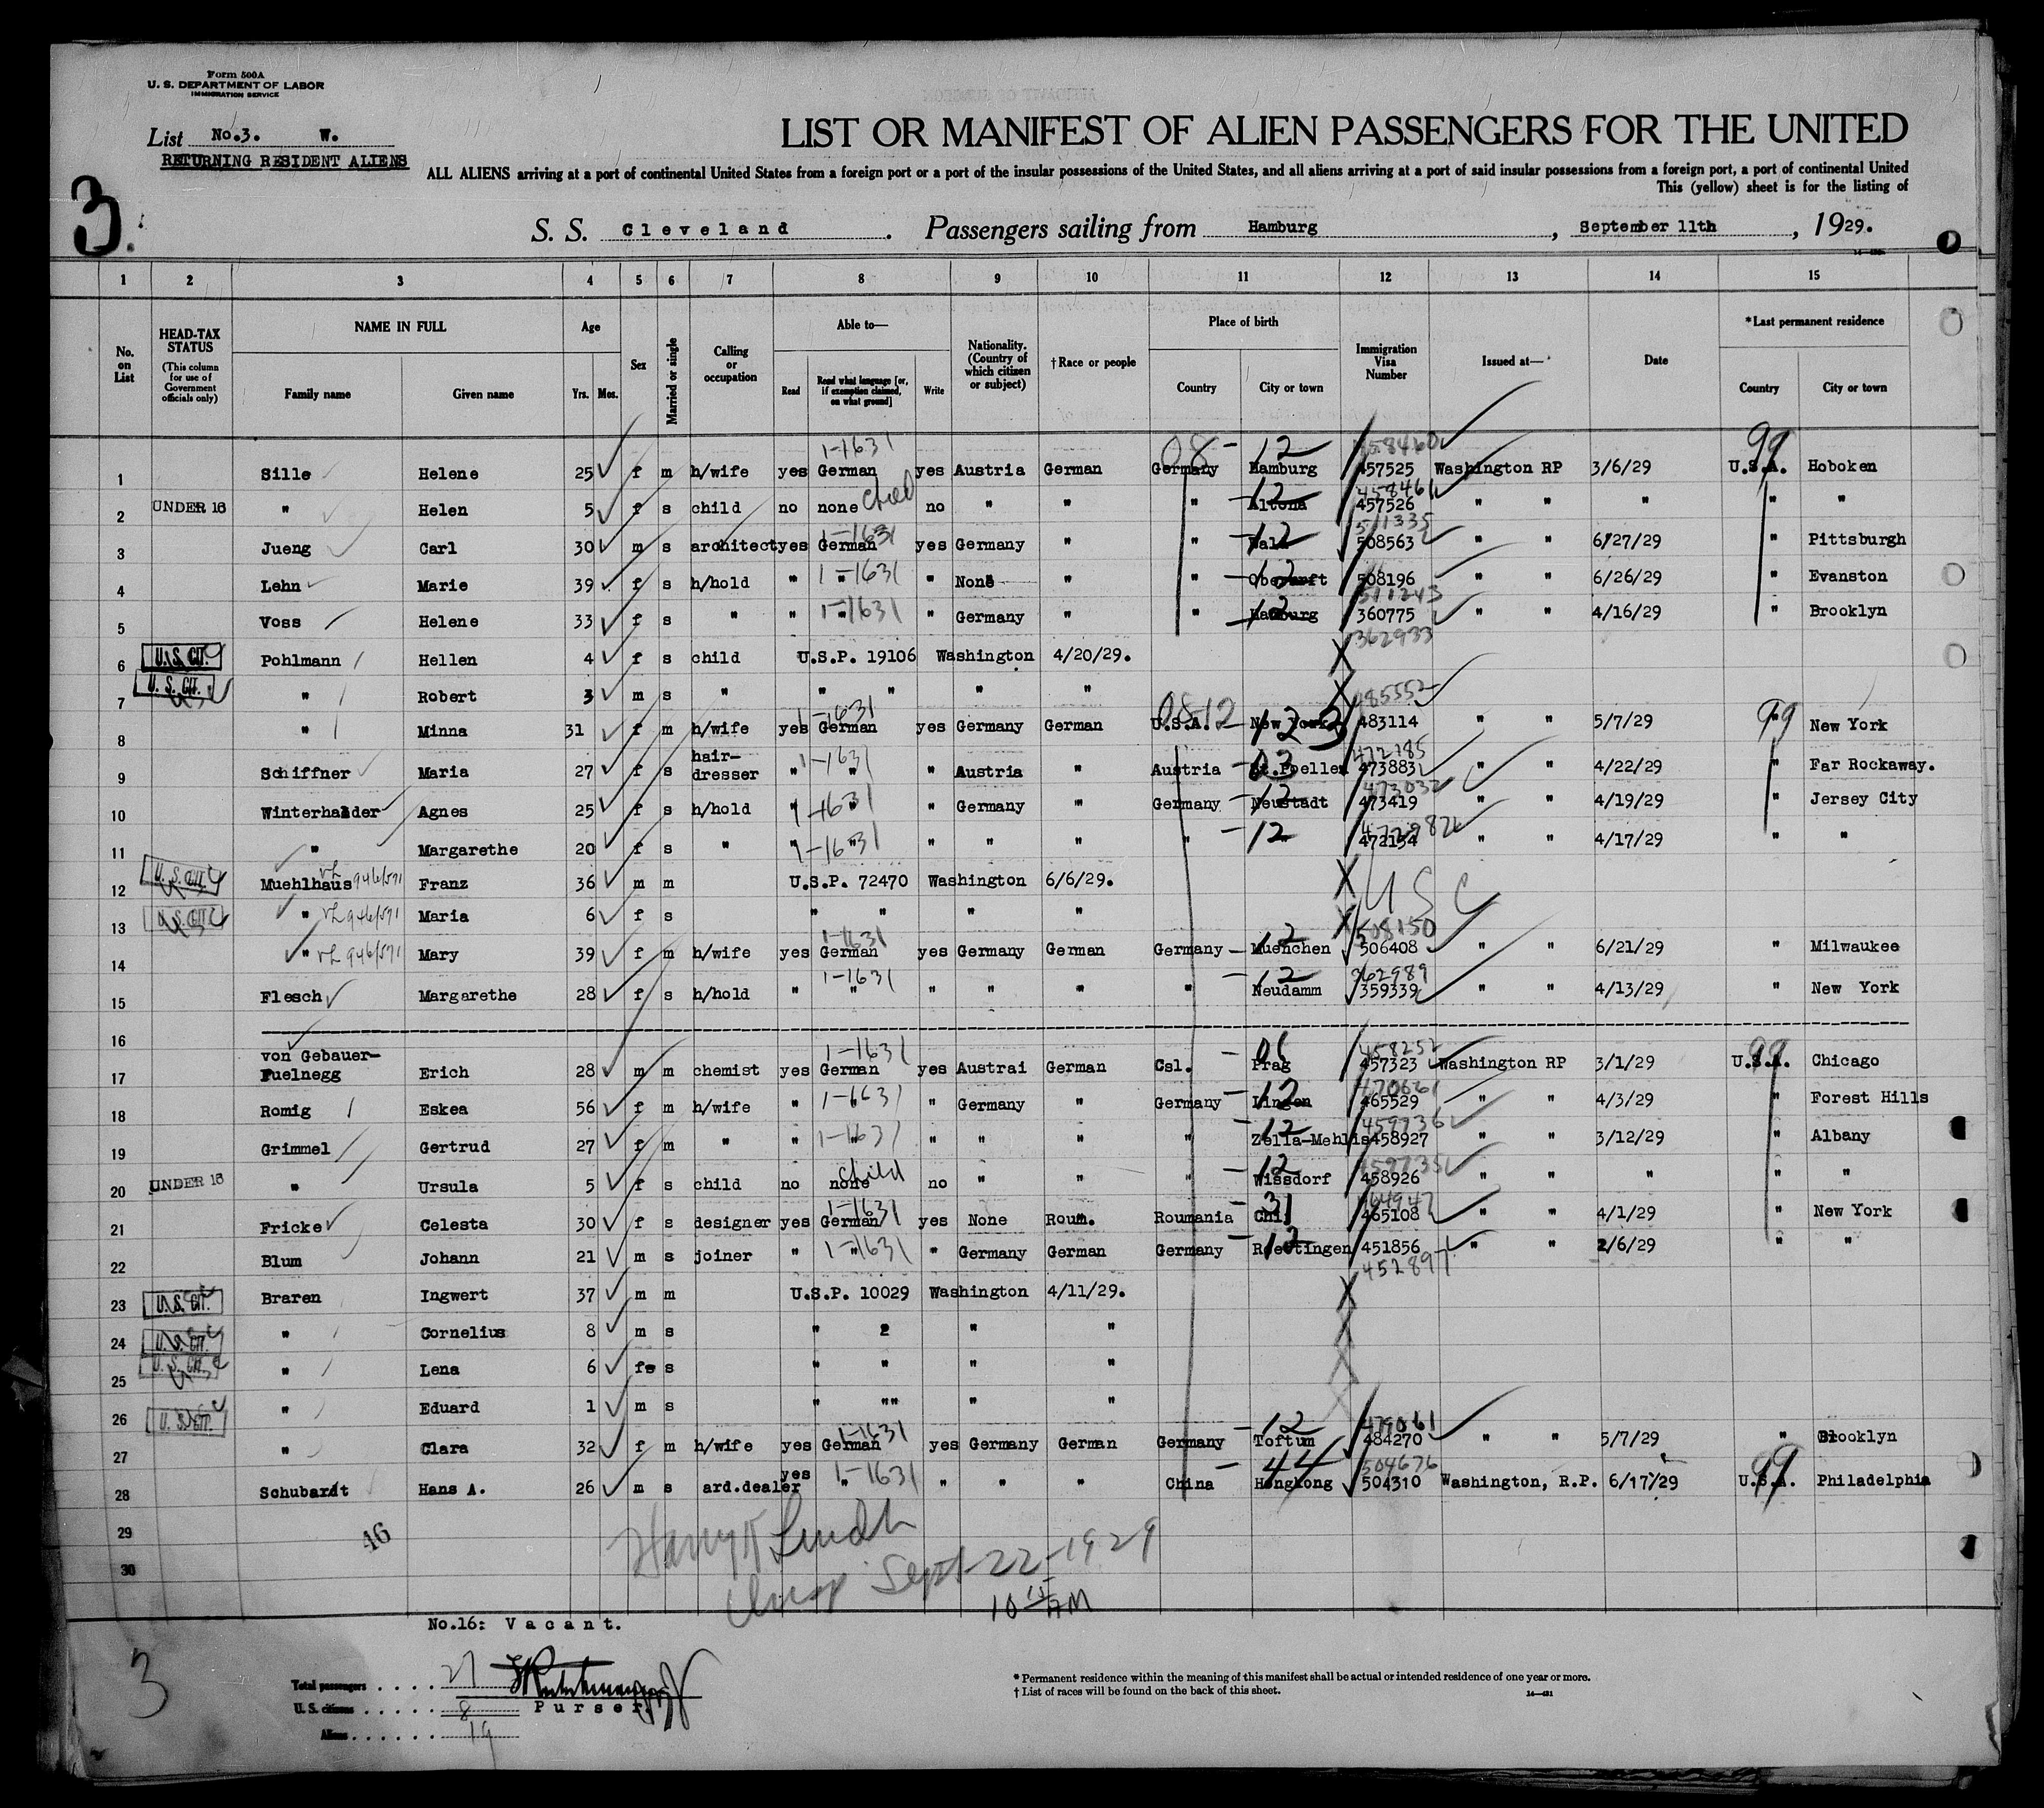 Form 500A
U. S. DEPARTMENT OF LABOR
IMMIGRATION SERVICE
List No.3. W.
RETURNING RESIDENT ALIENS
3.
LIST OR MANIFEST OF ALIEN PASSENGERS FOR THE UNITED
ALL ALIENS arriving at a port of continental United States from a foreign port or a port of the insular possessions of the United States, and all aliens arriving at a port of said insular possessions from a foreign port, a port of continental United
This (yellow) sheet is for the listing of
S. S. Cleveland. Passengers sailing from Hamburg, September 11th, 1929.
1 2 3 4 5 6 7 8 9 10 11 12 13 14 15
No. on List
HEAD-TAX STATUS
(This column for use of Government officials only)
NAME IN FULL
Family name Given name
Age
Yrs. Mos.
Sex
Married or single
Calling or occupation
Able to—
Read Read what language [or, if exemption claimed, on what ground] Write
Nationality. (Country of which citizen or subject)
† Race or people
Place of birth
Country City or town
Immigration Visa Number
Issued at—
Date
* Last permanent residence
Country City or town
1 Sille Helene 25 f m h/wife yes German 1-1631 yes Austria German Germany 08-12 Hamburg 458460 457525 Washington RP 3/6/29 U.S.A. 99 Hoboken
2 UNDER 16 " Helen 5 f s child no none child no " " " 12 Altona 458461 457526 " " " " "
3 Jueng Carl 30 m s architect yes German 1-1631 yes Germany " " 12 Wald 511335 508563 " " 6/27/29 " Pittsburgh
4 Lehn Marie 39 f s h/hold " " 1-1631 " None " " 12 508196 " " 6/26/29 " Evanston
5 Voss Helene 33 f s " " " 1-1631 " Germany " " 12 Hamburg 511243 360775 " " 4/16/29 " Brooklyn
6 U.S. CIT. Pohlmann Hellen 4 f s child U.S.P. 19106 Washington 4/20/29. 362933
7 U. S. CIT. " Robert 3 m s " " " " "
8 " Minna 31 f m h/wife yes German 1-1631 yes Germany German U.S.A. 0812 New York 123 485552 483114 " " 5/7/29 " 99 New York
9 Schiffner Maria 27 f s hair-dresser " " 1-1631 " Austria " Austria 03 St.Poellen 472185 473883 " " 4/22/29 " Far Rockaway.
10 Winterhalder Agnes 25 f s h/hold " " 1-1631 " Germany " Germany 12 Neustadt 473032 473419 " " 4/19/29 " Jersey City
11 " Margarethe 20 f s " " " 1-1631 " " " " 12 " 472154 " " 4/17/29 " "
12 U. S. CIT. Muehlhaus 946/591 Franz 36 m m U.S.P. 72470 Washington 6/6/29. USC
13 U. S. CIT. " 946/591 Maria 6 f s " " " "
14 " 946/591 Mary 39 f m h/wife yes German 1-1631 yes Germany German Germany 12 Muenchen 508150 506408 " " 6/21/29 " Milwaukee
15 Flesch Margarethe 28 f s h/hold " " 1-1631 " " " " 12 Neudamm 362989 359339 " " 4/13/29 " New York
16
17 von Gebauer-Fuelnegg Erich 28 m m chemist yes German 1-1631 yes Austrai German Csl. 06 Prag 458252 457323 Washington RP 3/1/29 U.S.A. 99 Chicago
18 Romig Eskea 56 f m h/wife " " 1-1631 " Germany " Germany 12 Lingen 470661 465529 " " 4/3/29 " Forest Hills
19 Grimmel Gertrud 27 f m " " " 1-1631 " " " " 12 Zella-Mehlis 459736 458927 " " 3/12/29 " Albany
20 UNDER 16 " Ursula 5 f s child no none child no " " " 12 Wissdorf 459735 458926 " " " " "
21 Fricke Celesta 30 f s designer yes German 1-1631 yes None Roum. Roumania 31 464947 465108 " " 4/1/29 " New York
22 Blum Johann 21 m s joiner " " 1-1631 " Germany German Germany 12 451856 " " 2/6/29 " "
23 U.S. CIT. Braren Ingwert 37 m m U.S.P. 10029 Washington 4/11/29. 452897
24 U. S. CIT. " Cornelius 8 m s " 2 " "
25 U. S. CIT. " Lena 6 fs s " " " "
26 U. S. CIT. " Eduard 1 m s " "" " "
27 " Clara 32 f m h/wife yes German 1-1631 yes Germany German Germany 12 Toftum 479061 484270 " " 5/7/29 " Brooklyn
28 Schubardt Hans A. 26 m s ard.dealer yes " 1-1631 " " " China 44 Hongkong 504676 504310 Washington, R.P. 6/17/29 U.S.A. 99 Philadelphia
29
30
46
Sept-22-1929
10 15 AM
No.16: Vacant.
3
Total passengers 27
U. S. citizens 8
Aliens 19
Purser.
* Permanent residence within the meaning of this manifest shall be actual or intended residence of one year or more.
† List of races will be found on the back of this sheet.